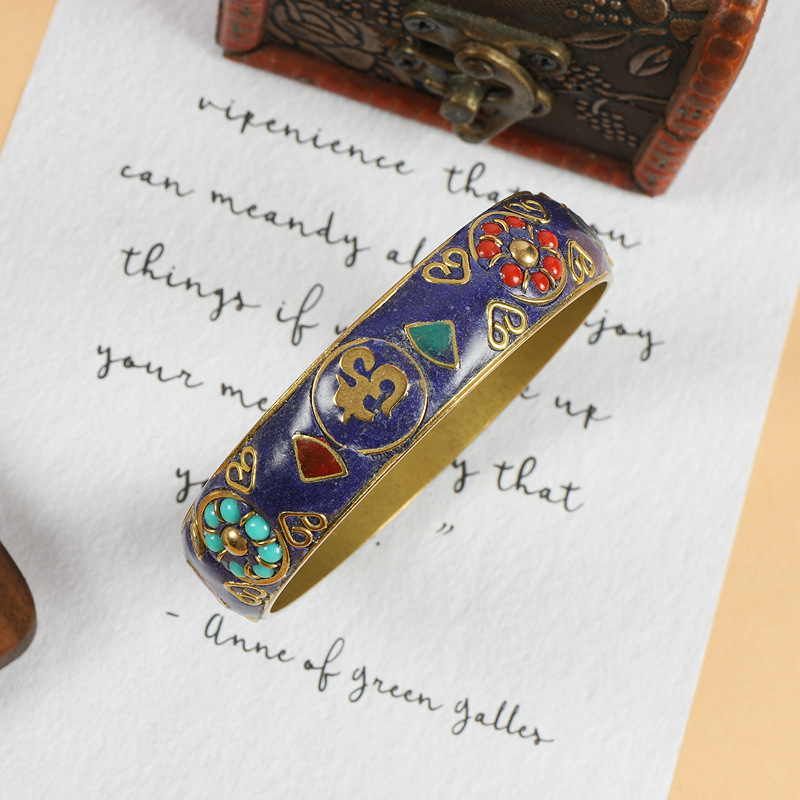 vipenience that you
can meandy al
things if y njoy
your me e up
yo y that
. "
- Anne of green galles